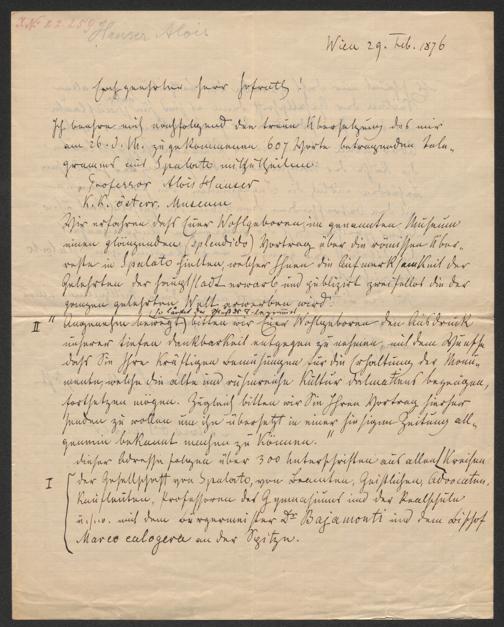 I.N. 22.259
Hauser Alois
Wien 29. Feb. 1876
Hochgeehrter Herr Hofrath!
Ich beehre mich nachfolgend die treue Übersetzung des mir
am 26. d. M. zugekommenen 607 Worte betragenden Tele-
gramms aus Spalato mitzutheilen.
„Professor Alois Hauser
K. K. österr. Museum
Wir erfahren daß Euer Wohlgeboren im genannten Museum
einen glänzenden (splendido) Vortrag über die römischen Über-
reste in Spalato hielten, welcher Ihnen die Aufmerksamkeit der
Gelehrten der Hauptstadt erwarb und zweifellos die der
ganzen gelehrten Welt erwerben wird.
II " Angenehm bewegt bitten wir Euer Wohlgeboren den Ausdruck
unserer tiefen Dankbarkeit entgegen zu nehmen, mit dem Wunsche
daß Sie Ihre kräftigen Bemühungen für die Erhaltung der Monu-
mente, welche die alte und ruhmreiche Kultur Dalmatiens bezeugen,
fortsetzen mögen. Zugleich bitten wir Sie Ihren Vortrag hierher
senden zu wollen um ihn übersetzt in einer hiesigen Zeitung all-
gemein bekannt machen zu können."
Dieser Adresse folgen über 300 Unterschriften aus allen Kreisen
I der Gesellschaft von Spalato, von Beamten, Geistlichen, Advocaten,
Kaufleuten, Professoren des Gymnasiums und der Realschule
u.s.w. mit dem Bürgermeister Dr. Bajamonti und dem Bischof
Marco Calogera an der Spitze.